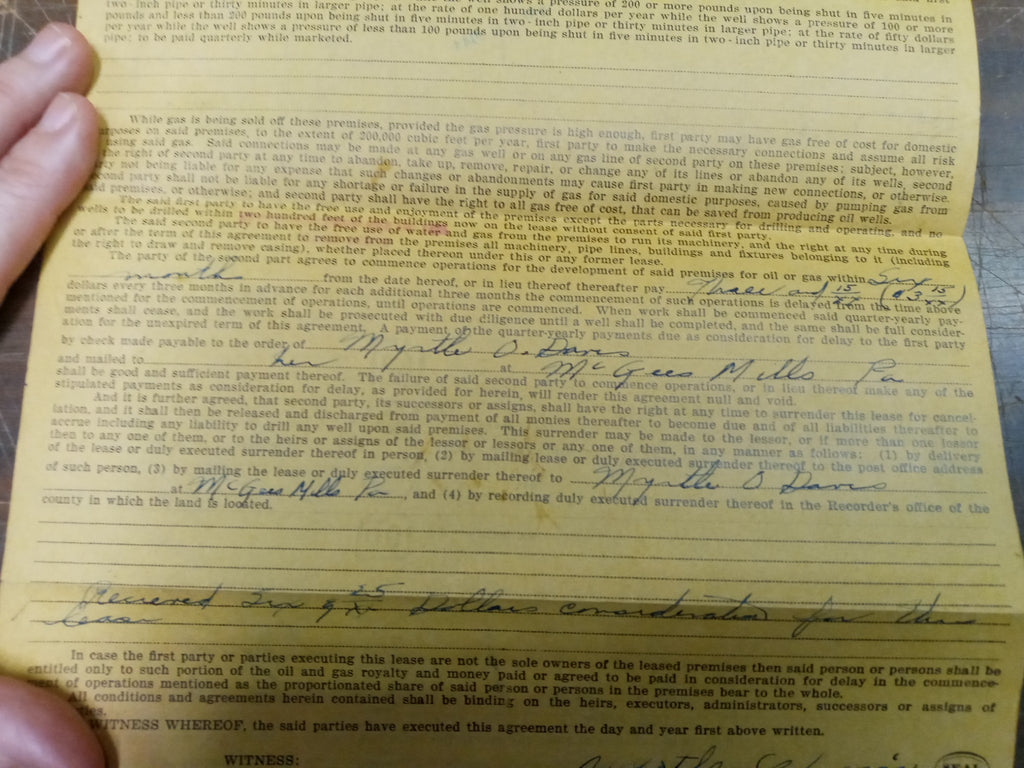 two-inch pipe or thirty minutes in larger pipe; at the rate of one hundred dollars per year while the well shows a pressure of 200 or more pounds upon being shut in five minutes in
pounds and less than 200 pounds upon being shut in five minutes in two-inch pipe or thirty minutes in larger pipe; at the rate of fifty dollars
per year while the well shows a pressure of less than 100 pounds upon being shut in five minutes in two-inch pipe or thirty minutes in larger
pipe; to be paid quarterly while marketed.
While gas is being sold off these premises, provided the gas pressure is high enough, first party may have gas free of cost for domestic
purposes on said premises, to the extent of 200,000 cubic feet per year, first party to make the necessary connections and assume all risk
using said gas. Said connections may be made at any gas well or on any gas line of second party on these premises; subject, however,
the right of second party at any time to abandon, take up, remove, repair, or change any of its lines or abandon any of its wells, second
party not being liable for any expense that such changes or abandonments may cause first party in making new connections, or otherwise.
second party shall not be liable for any shortage or failure in the supply of gas for said domestic purposes, caused by pumping gas from
said premises, or otherwise; and second party shall have the right to all gas free of cost, that can be saved from producing oil wells.
The said first party to have the free use and enjoyment of the premises except the parts necessary for drilling and operating, and no
wells to be drilled within two hundred feet of the buildings now on the lease without consent of said first party.
The said second party to have the free use of water and gas from the premises to run its machinery, and the right at any time during
or after the term of this agreement to remove from the premises all machinery, pipe lines, buildings and fixtures belonging to it (including
the right to draw and remove casing), whether placed thereon under this or any former lease.
The party of the second part agrees to commence operations for the development of said premises for oil or gas within Six
month from the date hereof, or in lieu thereof thereafter pay Three and 15/xx ($3 15/xx)
dollars every three months in advance for each additional three months the commencement of such operations is delayed from the time above
mentioned for the commencement of operations, until operations are commenced. When work shall be commenced said quarter-yearly pay-
ments shall cease, and the work shall be prosecuted with due diligence until a well shall be completed, and the same shall be full consider-
ation for the unexpired term of this agreement. A payment of the quarter-yearly payments due as consideration for delay to the first party
by check made payable to the order of Myrtle O. Davis
and mailed to her at McGees Mills Pa
shall be good and sufficient payment thereof. The failure of said second party to commence operations, or in lieu thereof make any of the
stipulated payments as consideration for delay, as provided for herein, will render this agreement null and void.
And it is further agreed, that second party, its successors or assigns, shall have the right at any time to surrender this lease for cancel-
lation, and it shall then be released and discharged from payment of all monies thereafter to become due and of all liabilities thereafter to
accrue including any liability to drill any well upon said premises. This surrender may be made to the lessor, or if more than one lessor
then to any one of them, or to the heirs or assigns of the lessor or lessors, or any one of them, in any manner as follows: (1) by delivery
of the lease or duly executed surrender thereof in person, (2) by mailing lease or duly executed surrender thereof to the post office address
of such person, (3) by mailing the lease or duly executed surrender thereof to Myrtle O. Davis
at McGees Mills Pa, and (4) by recording duly executed surrender thereof in the Recorder's office of the
county in which the land is located.
Received Six & 25/xx Dollars consideration for this
lease
In case the first party or parties executing this lease are not the sole owners of the leased premises then said person or persons shall be
entitled only to such portion of the oil and gas royalty and money paid or agreed to be paid in consideration for delay in the commence-
ment of operations mentioned as the proportionated share of said person or persons in the premises bear to the whole.
All conditions and agreements herein contained shall be binding on the heirs, executors, administrators, successors or assigns of
parties.
WITNESS WHEREOF, the said parties have executed this agreement the day and year first above written.
WITNESS:
SEAL